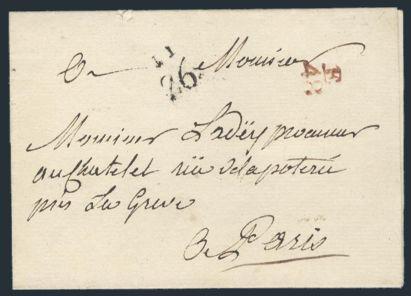 A Monsieur
Monsieur Ladëÿ procureur
au Chatelet rüe de la poterie
près La Greve
A Paris